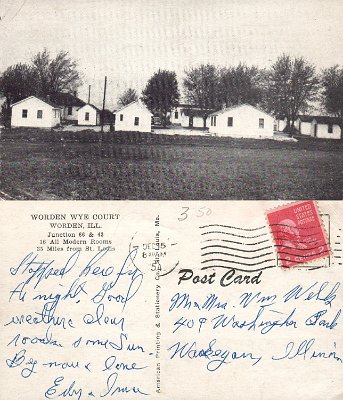 WORDEN WYE COURT
WORDEN, ILL.
Junction 66 & 43
16 All Modern Rooms
35 Miles from St. Louis
Stopped here for
the night. Good
weather clear
roads some Sun.
Bye now & love
American Printing & Stationery Co., St. Louis, Mo.
3 50
DEC 5
UNITED STATES
Post Card
Mr. Mrs. Wm
409 Washington Park
Waukegan, Illinois